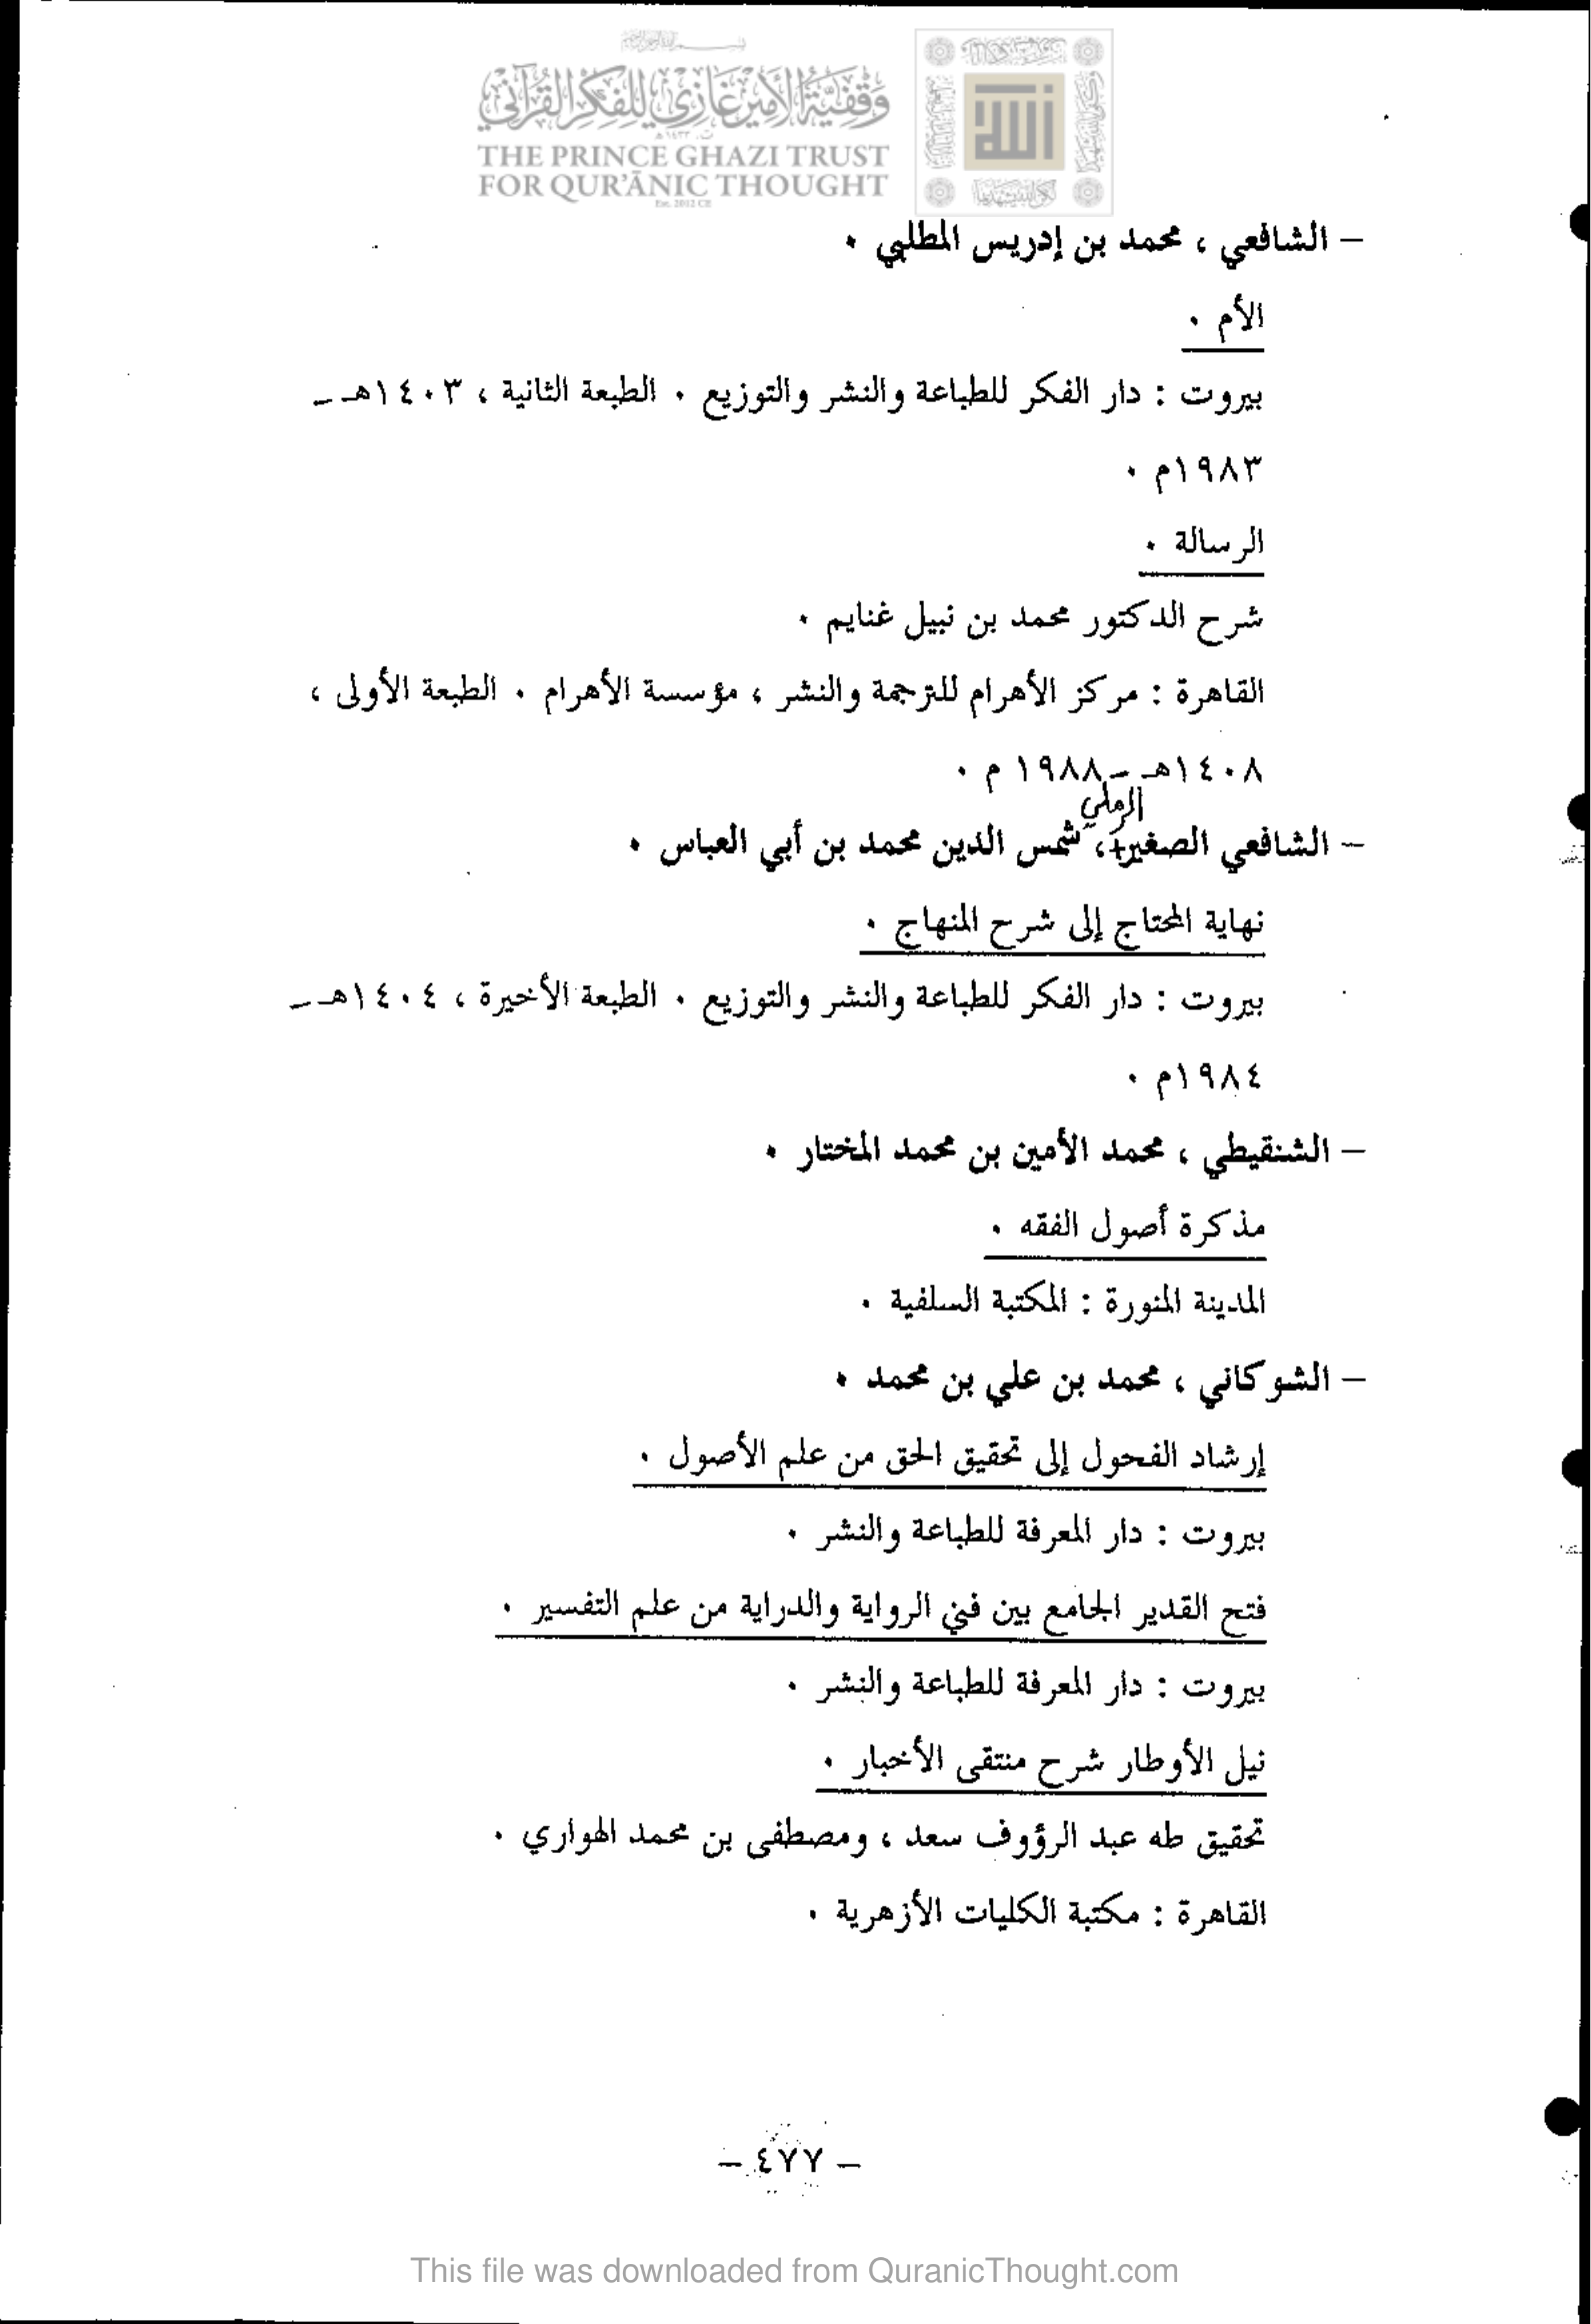 وقفية الأمير غازي للفكر القرآني
THE PRINCE GHAZI TRUST
FOR QUR'ĀNIC THOUGHT
Est. 2012 CE
الله
– الشافعي ، محمد بن إدريس المطلبي .
الأم .
بيروت : دار الفكر للطباعة والنشر والتوزيع . الطبعة الثانية ، ١٤٠٣هـ –
١٩٨٣م .
الرسالة .
شرح الدكتور محمد بن نبيل غنايم .
القاهرة : مركز الأهرام للترجمة والنشر ، مؤسسة الأهرام . الطبعة الأولى ،
١٤٠٨هـ – ١٩٨٨ م .
الرملي
– الشافعي الصغير ، شمس الدين محمد بن أبي العباس .
نهاية المحتاج إلى شرح المنهاج .
بيروت : دار الفكر للطباعة والنشر والتوزيع . الطبعة الأخيرة ، ١٤٠٤هـ –
١٩٨٤م .
– الشنقيطي ، محمد الأمين بن محمد المختار .
مذكرة أصول الفقه .
المدينة المنورة : المكتبة السلفية .
– الشوكاني ، محمد بن علي بن محمد .
إرشاد الفحول إلى تحقيق الحق من علم الأصول .
بيروت : دار المعرفة للطباعة والنشر .
فتح القدير الجامع بين فني الرواية والدراية من علم التفسير .
بيروت : دار المعرفة للطباعة والنشر .
نيل الأوطار شرح منتقى الأخبار .
تحقيق طه عبد الرؤوف سعد ، ومصطفى بن محمد الهواري .
القاهرة : مكتبة الكليات الأزهرية .
– ٤٧٧ –
This file was downloaded from QuranicThought.com